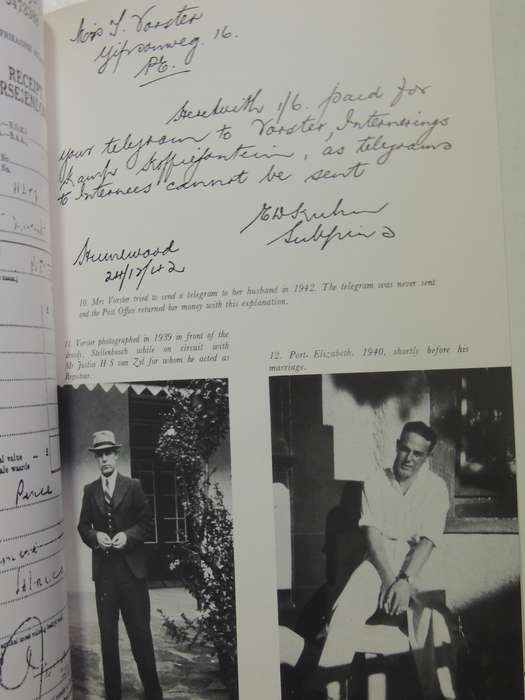 547898
RIKAANSE
RECEIPT
No.
No.
al value
ale waarde
Price
Mrs T. Vorster
16.
P.E.
Herewith 1/6. paid for
your telegram to Vorster, Internerings
Kamp Koffiefontein, as telegrams
to Internees cannot be sent
Humewood
24/12/42
10. Mrs Vorster tried to send a telegram to her husband in 1942. The telegram was never sent
and the Post Office returned her money with this explanation.
11. Vorster photographed in 1939 in front of the
drosdy, Stellenbosch while on circuit with
Mr Justice H S van Zyl for whom he acted as
Registrar.
12. Port Elizabeth, 1940, shortly before his
marriage.